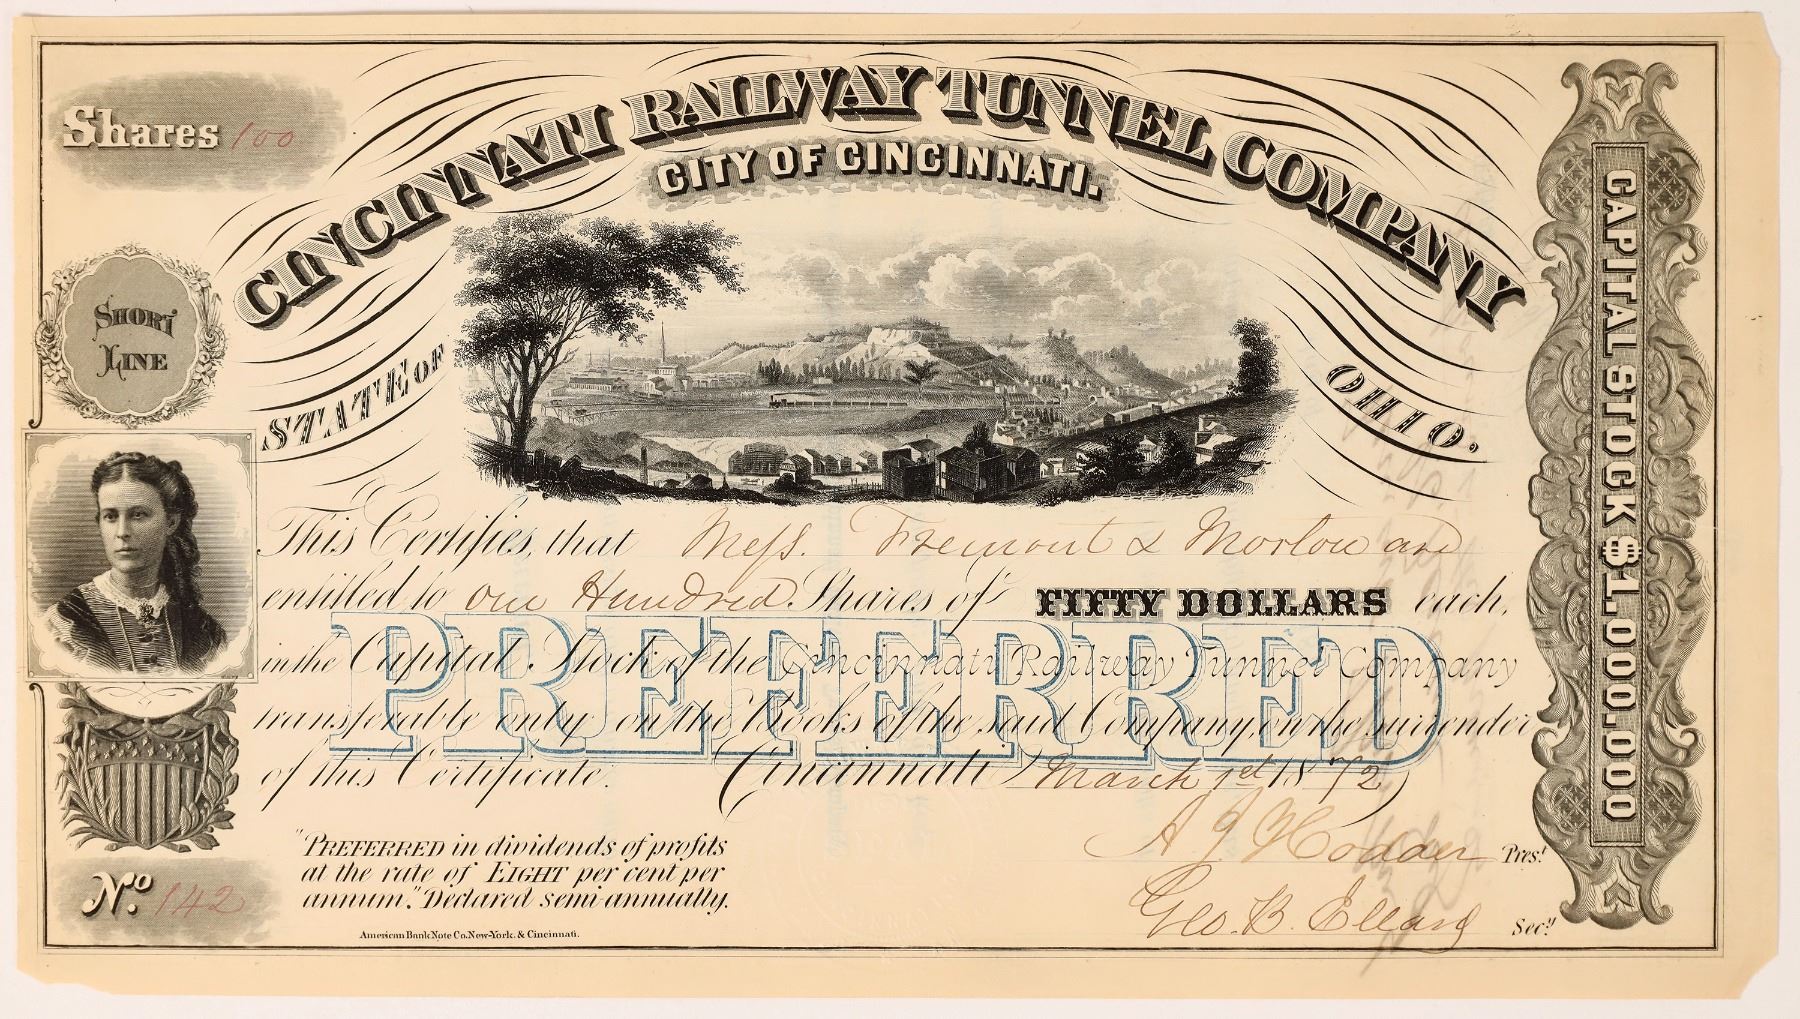 Shares 100
CINCINNATI RAILWAY TUNNEL COMPANY
CITY OF CINCINNATI.
SHORT
LINE
STATE OF
OHIO.
CAPITAL STOCK $1,000,000
This Certifies, that Mess. Fremont & Morton are
entitled to One Hundred Shares of FIFTY DOLLARS each,
in the Capital Stock of the Cincinnati Railway Tunnel Company
transferable only on the Books of the said Company, on the surrender
of this Certificate. Cincinnati, March 1st 1872
PREFERRED
"PREFERRED in dividends of profits
at the rate of EIGHT per cent per
annum". Declared semi-annually.
A J Hodder Prest
Geo. B. Ellard Secy
No. 142
American Bank Note Co. New-York. & Cincinnati.